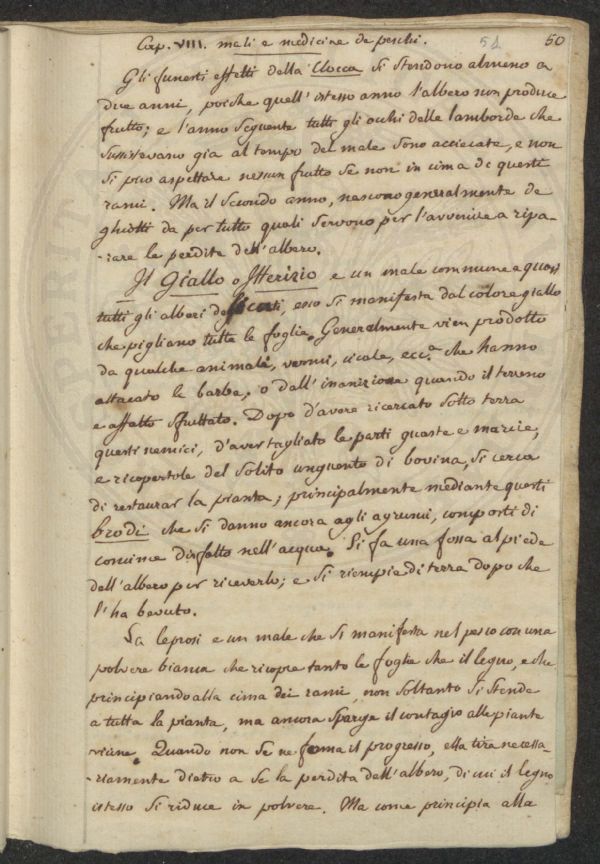 Cap. VIII. mali e medicine de peschi. 51 50
Gli funesti effetti della Clocca si stendono almeno a
due anni, poiche quell'istesso anno l'albero non produce
frutto; e l'anno seguente tutti gli occhi delle lamborde che
sussistevano gia al tempo del male sono acciecate, e non
si può aspettare nessun frutto se non in cima di questi
rami. Ma il secondo anno, nascono generalmente de
ghiotti da per tutto quali servono per l'avvenire a ripa-
-rare le perdite dell'albero.
Il Giallo o Itterizio e un male commune a quasi
tutti gli alberi, esso si manifesta dal colore giallo
che pigliano tutte le foglie. Generalmente vien prodotto
da qualche animali, vermi, cicale, ecc.a che hanno
attacato le barbe, o dall'inanizione quando il terreno
e affatto sfruttato. Dopo d'avere ricercato sotto terra
questi nemici, d'aver tagliato le parti guaste e marcie,
e ricopertole del solito unguento di bovina, si cerca
di restaurar la pianta; principalmente mediante questi
brodi che si danno ancora agli agrumi, composti di
concime disfatto nell'acqua. Si fa una fossa al piede
dell'albero per riceverlo; e si riempie di terra dopo che
l'ha bevuto.
La leprosi e un male che si manifesta nel pesco con una
polvere bianca che ricopre tanto le foglie che il legno, e che
principiando alla cima dei rami, non soltanto si stende
a tutta la pianta, ma ancora sparge il contagio alle piante
vicine. Quando non se ne ferma il progresso, ella tira necessa-
-riamente dietro a se la perdita dell'albero, di cui il legno
istesso si riduce in polvere. Ma come principia alla